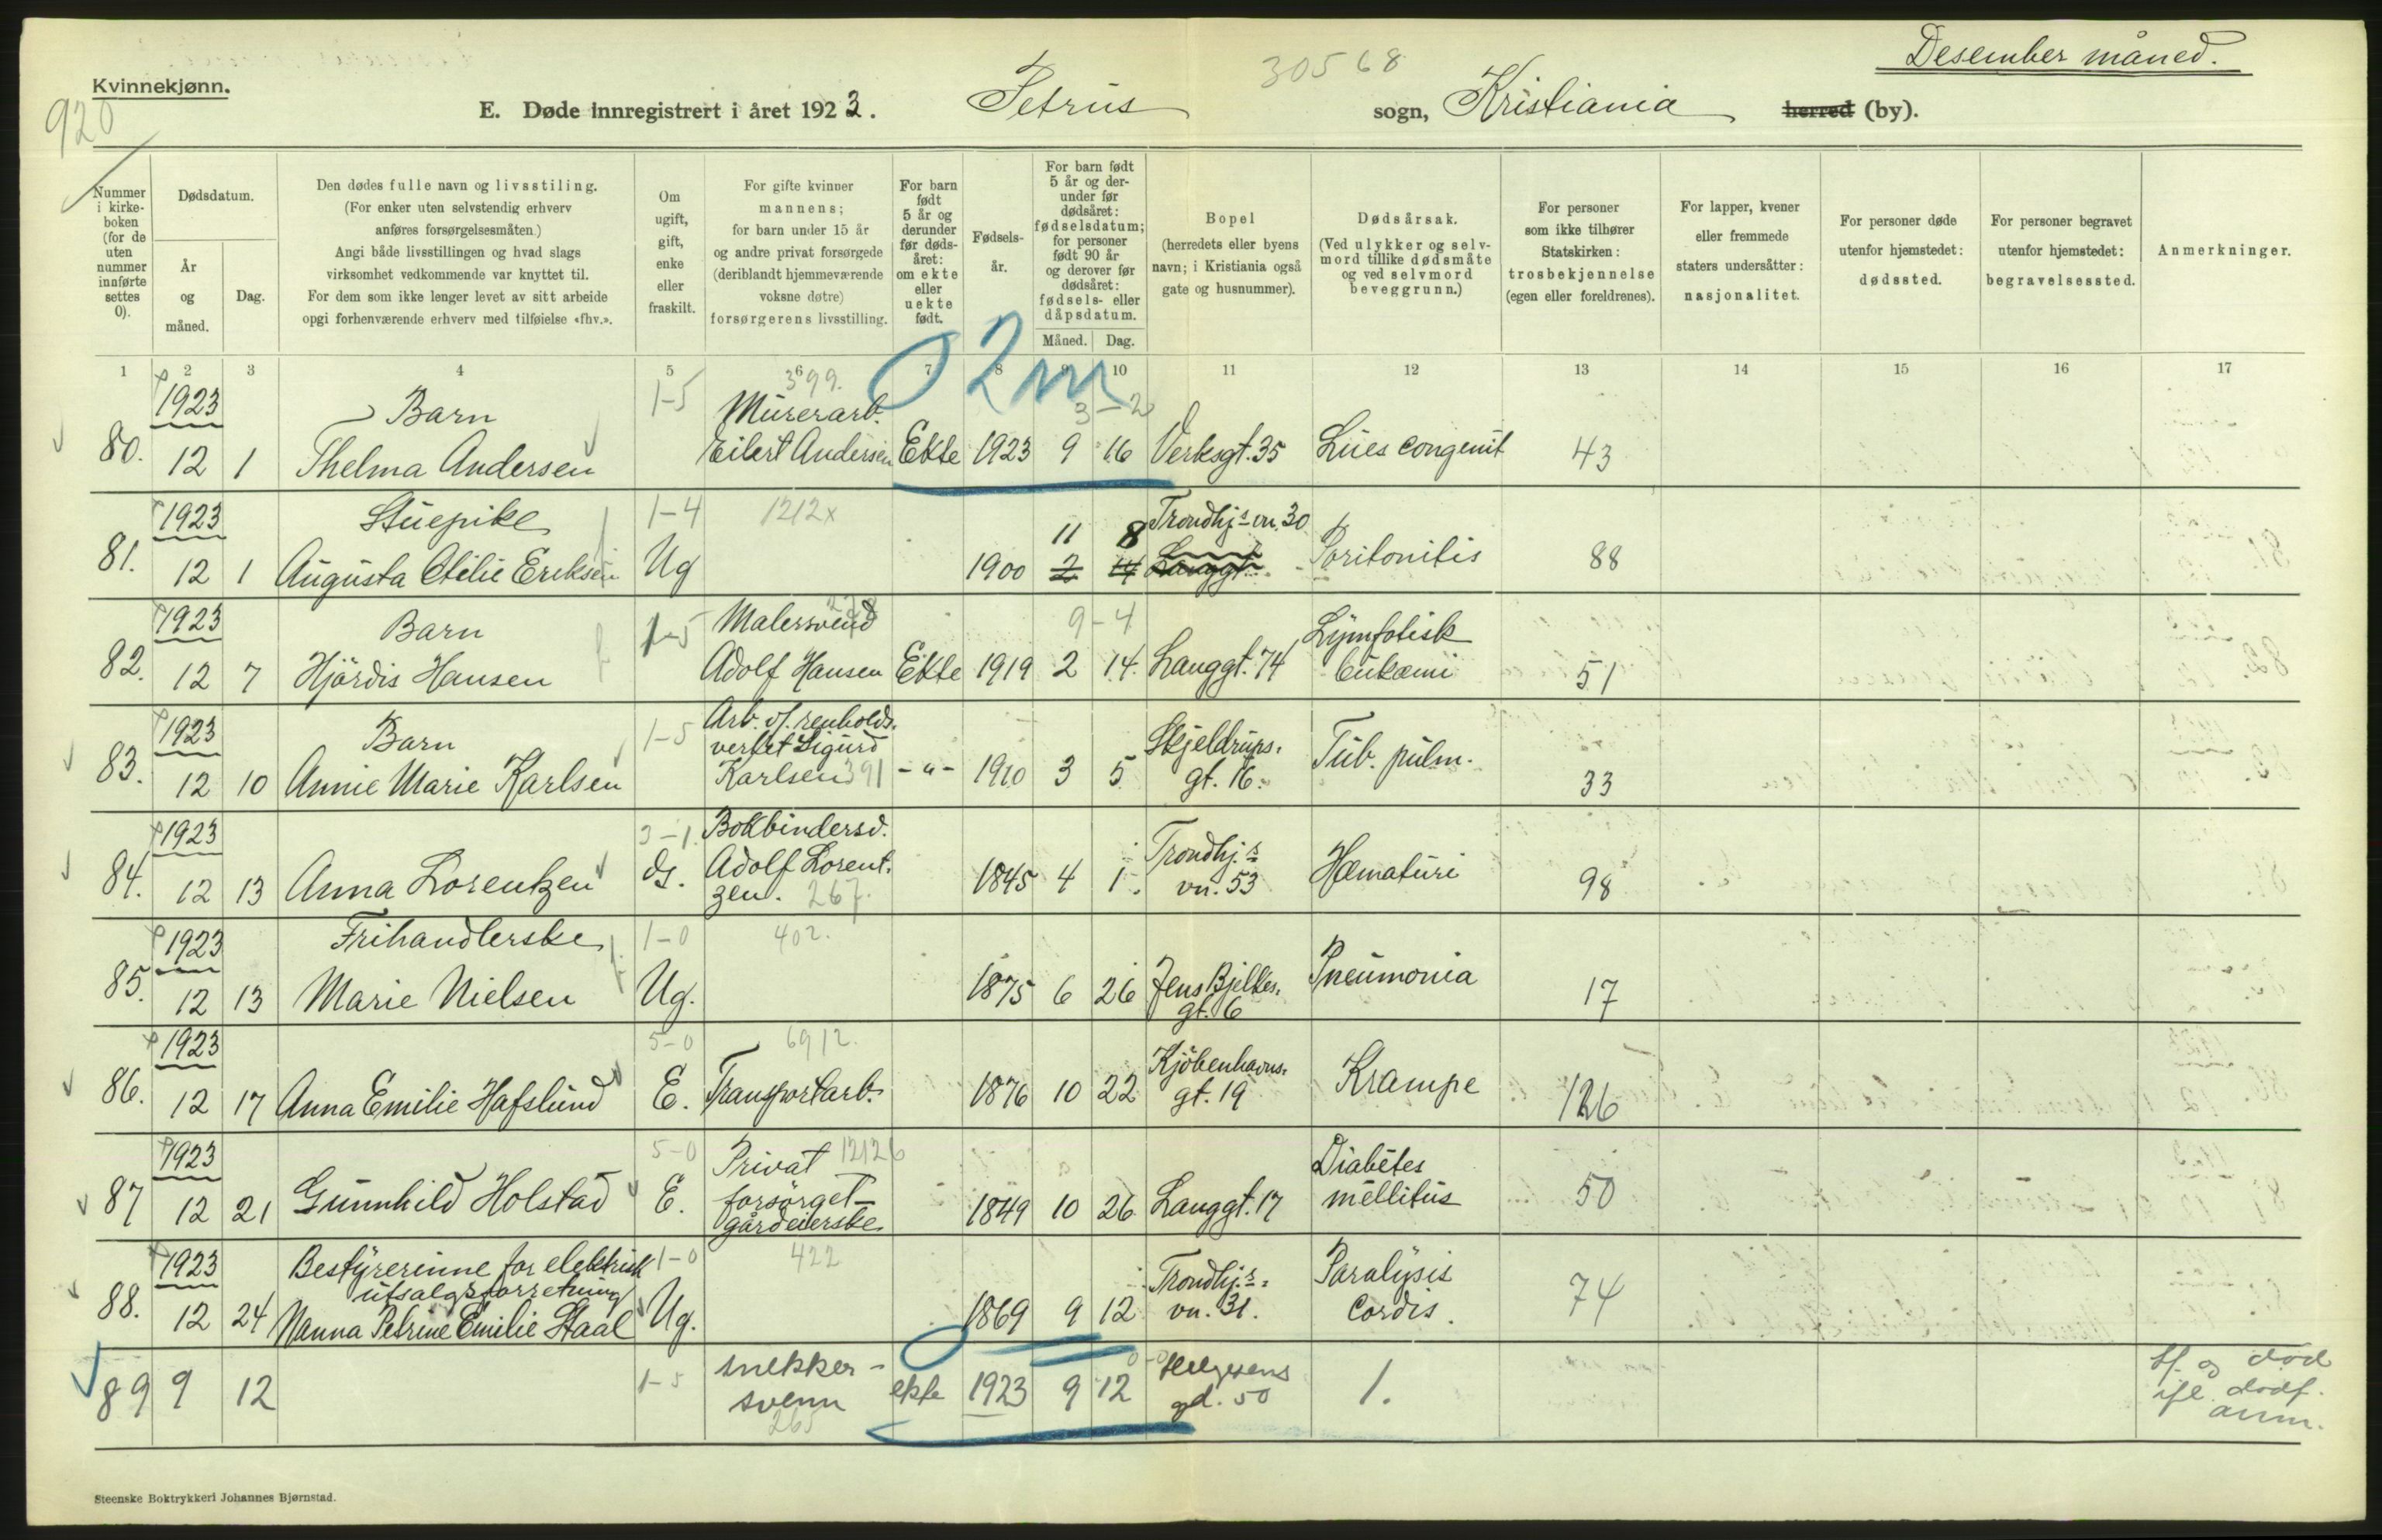 Desember måned.
Kvinnekjønn.
920
30568
E. Døde innregistrert i året 1923. Petrus sogn, Kristiania herred (by).
Nummer i kirke-boken (for de uten nummer innførte settes 0).
Dødsdatum.
År og måned.
Dag.
Den dødes fulle navn og livsstiling.
(For enker uten selvstendig erhverv
anføres forsørgelsesmåten.)
Angi både livsstillingen og hvad slags
virksomhet vedkommende var knyttet til.
For dem som ikke lenger levet av sitt arbeide
opgi forhenværende erhverv med tilføielse «fhv.».
Om ugift, gift, enke eller fraskilt.
For gifte kvinner
mannens;
for barn under 15 år
og andre privat forsørgede
(deriblandt hjemmeværende
voksne døtre)
forsørgerens livsstilling.
For barn født 5 år og derunder før døds-året: om ekte eller uekte født.
Fødsels-år.
For barn født 5 år og der-under før dødsåret: fødselsdatum; for personer født 90 år og derover før dødsåret: fødsels- eller dåpsdatum.
Måned. Dag.
Bopel
(herredets eller byens
navn; i Kristiania også
gate og husnummer).
Dødsårsak.
(Ved ulykker og selv-
mord tillike dødsmåte
og ved selvmord
beveggrunn.)
For personer
som ikke tilhører
Statskirken:
trosbekjennelse
(egen eller foreldrenes).
For lapper, kvener
eller fremmede
staters undersåtter:
nasjonalitet.
For personer døde
utenfor hjemstedet:
dødssted.
For personer begravet
utenfor hjemstedet:
begravelsessted.
Anmerkninger.
1 2 3 4 5 6 7 8 9 10 11 12 13 14 15 16 17
02m
1923 Barn 1-5 399. Murerarb. 3-2
80. 12 1 Thelma Andersen Eilert Andersen Ekte 1923 9 16 Verksgt. 35 Lues congenit 43
1923 Stuepike 1-4 1212x 11 8 Trondhj.s vn. 30
81. 12 1 Augusta Otilie Eriksen Ug 1900 2 14 Langgt. Peritonitis 88
1923 Barn 1-5 Malersvend 9-4 Lymfatisk
82. 12 7 Hjördis Hansen Adolf Hansen Ekte 1919 2 14. Langgt. 74 leukæmi 51
1923 Barn 1-5 Arb. v/. renholds. verket Sigurd Skjeldrups.
83. 12 10 Annie Marie Karlsen Karlsen 391 -"- 1920 3 5. gt. 16. Tub. pulm. 33
1923 3-1. Bokbindersv. Trondhj.s
84. 12 13 Anna Lorentzen G. Adolf Lorent. zen. 267. 1845 4 1. vn. 53 Hæmaturi 98
1923 Frihandlerske 1-0 402.
85. 12 13 Marie Nielsen Ug. 1875 6 26 Jens Bjelkes. gt. 6 Pneumonia 17
1923 5-0 6912. Kjöbenhavns.
86. 12 17 Anna Emilie Hafslund E. Transportarb. 1876 10 22 gt. 19 Krampe 126
1923 5-0 Privat 12126 Diabetes
87 12 21 Gunnhild Holstad E. forsörget- gårdeierske 1849 10 26 Langgt. 17 mellitus 50
1923 Bestyrerinne for elektrisk utsalgsforretning 1-0 422 Trondhj.s. Paralysis
88. 12 24 Nanna Petrine Emilie Staal Ug. 1869 9 12 vn. 31. Cordis. 74
1-5 snekker- 0-0 Helgesens
89 9 12 svenn 265 ekte 1923 9 12 gd. 50 1. tf. og död ifl. dödf. anm.
Steenske Boktrykkeri Johannes Bjørnstad.